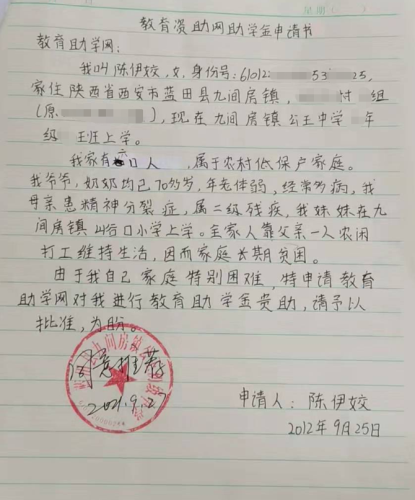 教育资助网助学金申请书
教育助学网:
我叫陈伊姣,女,身份号:61012 53 25,
家住陕西省西安市蓝田县九间房镇, 村 组
(原 ),现在九间房镇公王中学 年
级 班上学。
我家有六口人 ,属于农村低保户家庭。
我爷爷,奶奶均已70多岁,年老体弱,经常多病,我
母亲患精神分裂症,属二级残疾,我妹妹在九
间房镇峪口小学上学。全家人靠父亲一人农闲
打工维持生活,因而家庭长期贫困。
由于我自己家庭特别困难,特申请教育
助学网对我进行教育助学金资助,请予以
批准,为盼。
同意推荐
2021.9.27
申请人:陈伊姣
2012年9月25日